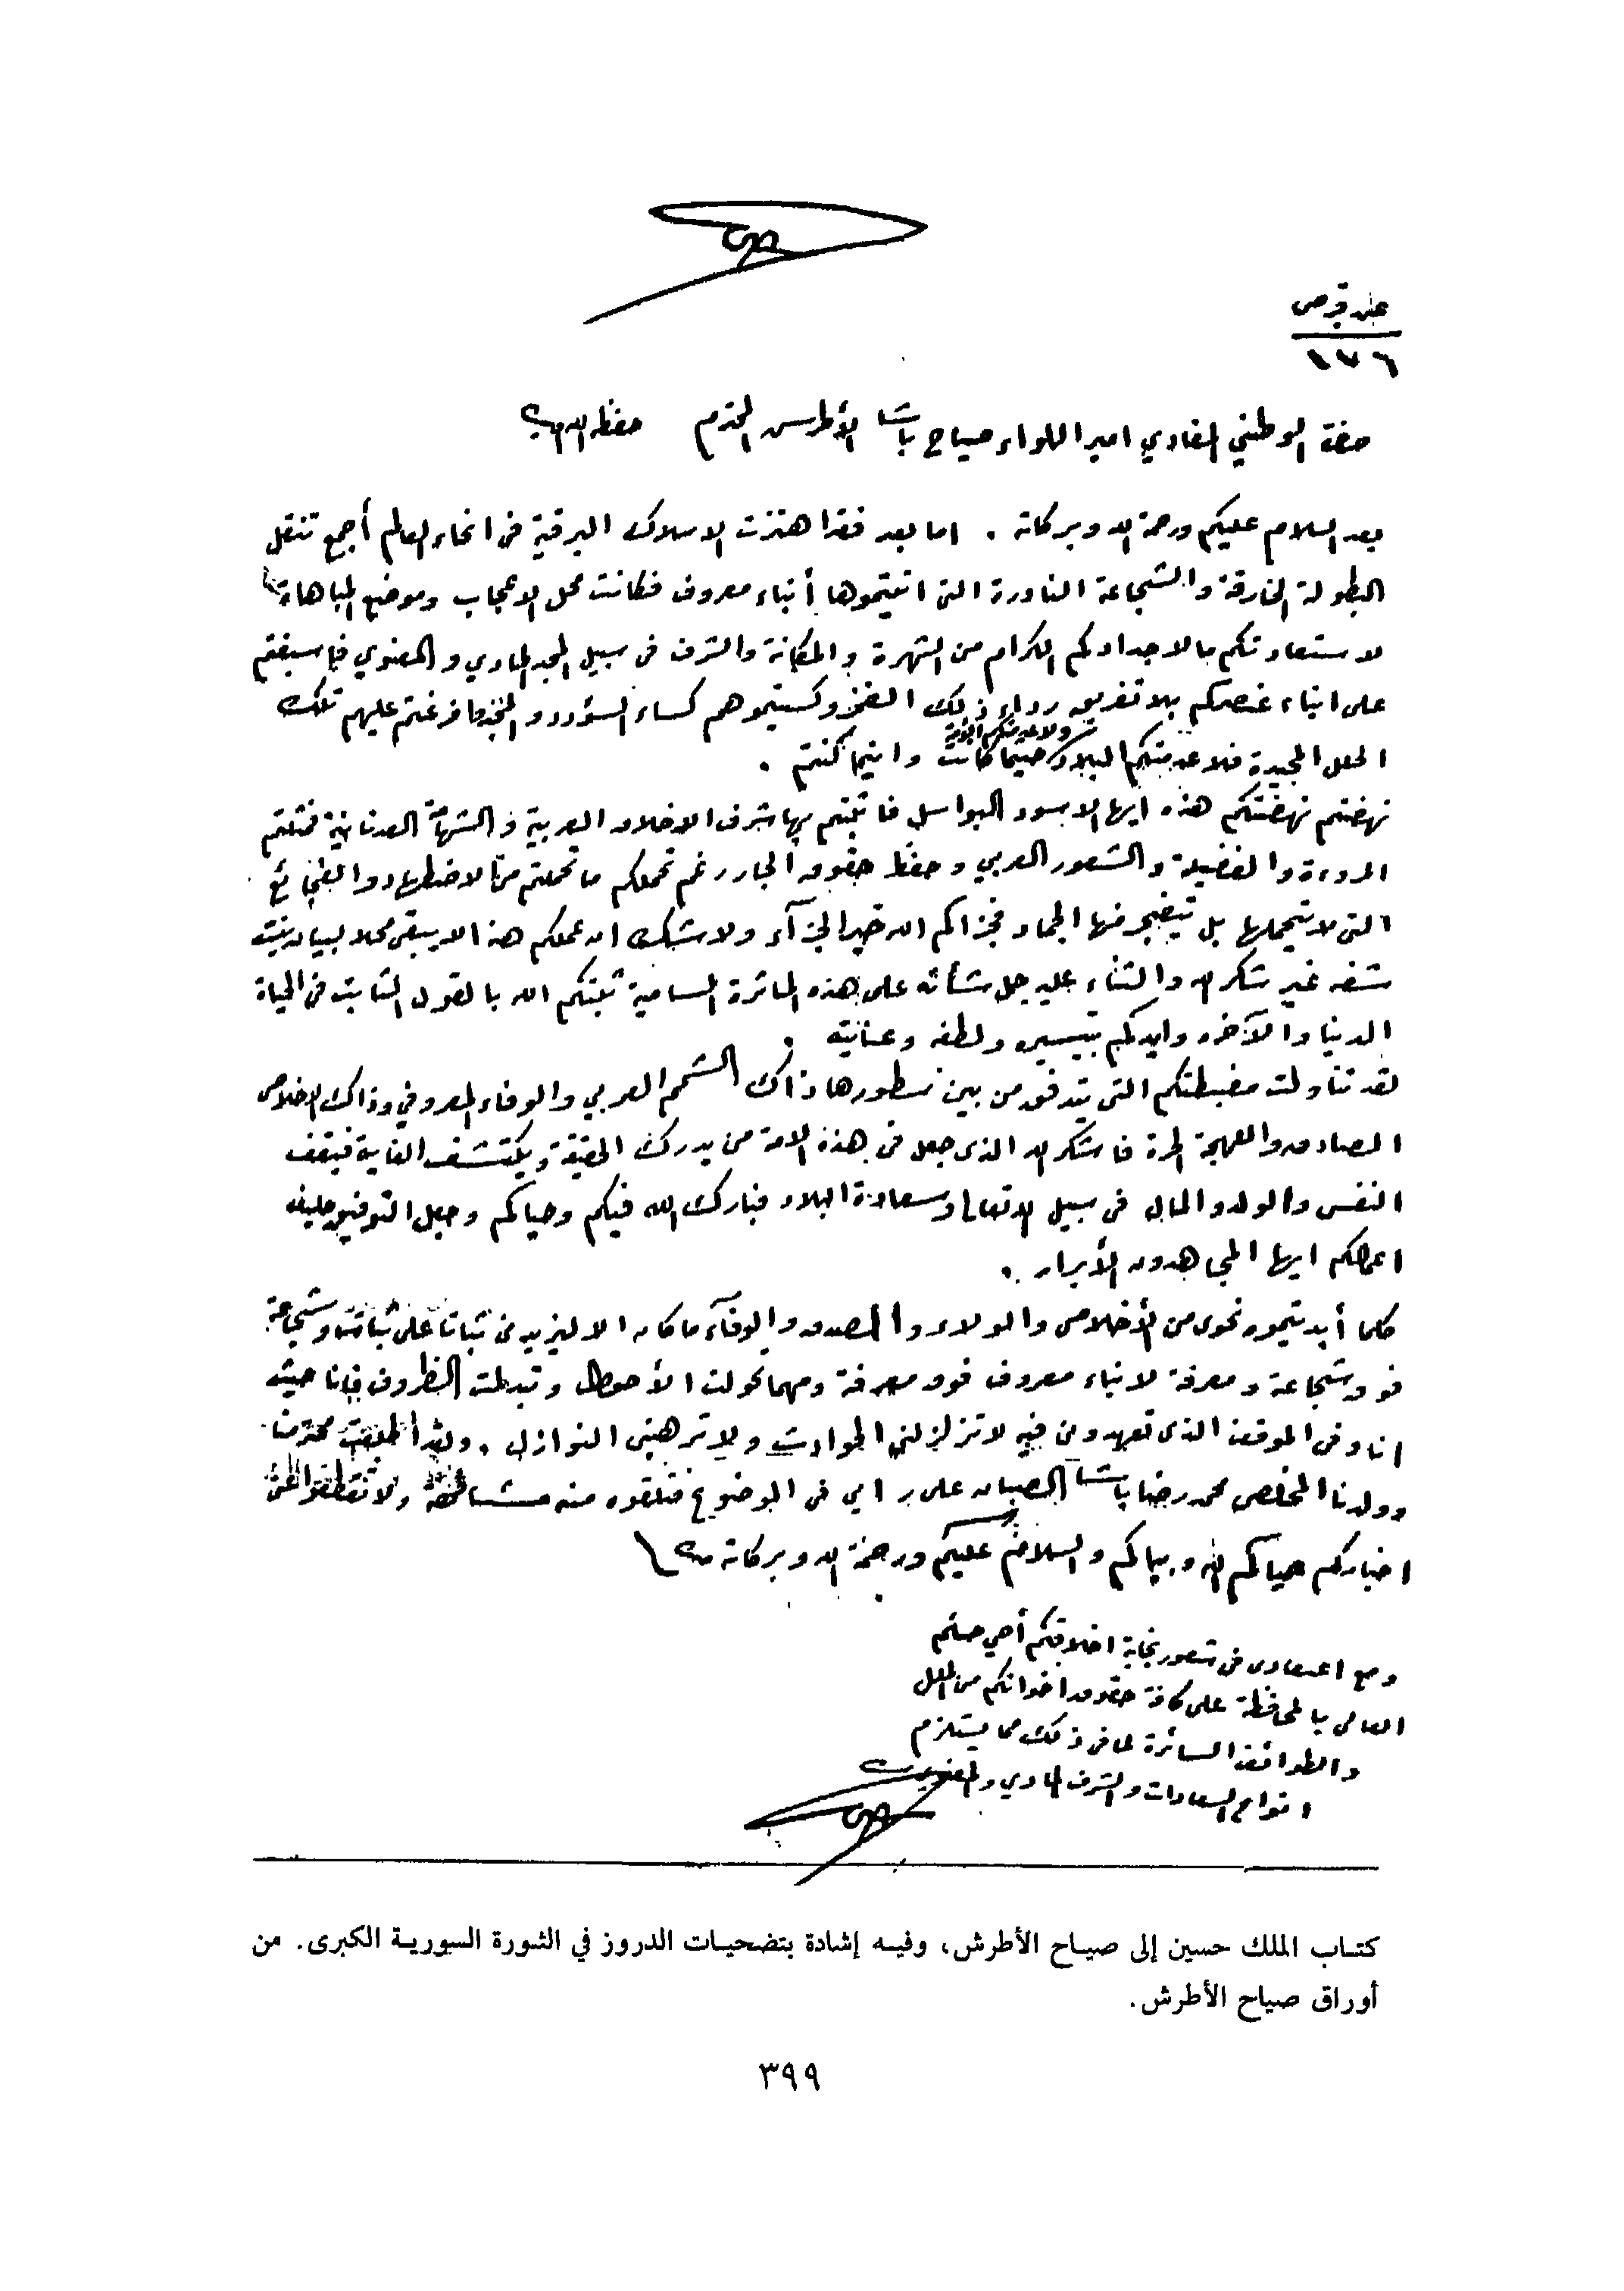 عدد قبرص
١٧٦
حضرة الوطني الفادي امير اللواء صياح باشا الأطرش المحترم حفظه الله
بعد السلام عليكم ورحمة الله وبركاته . اما بعد فقد اهتزت الاسلاك البرقية في انحاء العالم أجمع تنقل
البطولة الخارقة والشجاعة النادرة التي اتيتموها أبناء معروف فكانت محل الاعجاب وموضع المباهاة
لاستعادتكم ما لاجدادكم الكرام من الشهرة والمكانة والشرف في سبيل المجد المادي والمعنوي فاسبغتم
على ابناء عنصركم بلا تفريق رداء ذلك الفخر وكسيتموهم كساء السؤدد والمجد وافرغتم عليهم تلك
الحلل المجيدة فلا عدمتكم البلاد ولا عدمتكم حيثما كانت واينما كنتم .
نهضتم نهضتكم هذه ايها الاسود البواسل فاثبتم بها شرف الاخلاق العربية والشهامة العدنانية فمثلتم
المروءة والفضيلة والشعور العربي وحفظ حقوق الجار رغم تحملكم ما تحملتم من الاضطهاد والفجائع
التي لا يتحملها بل يتفجر منها الجماد فجزاكم الله خير الجزآء ولا شك ان عملكم هذا لا يبقى محلا لبيان ببنت
شفه غير شكر الله والثناء عليه جل شأنه على هذه المأثرة السامية ثبتكم الله بالقول الثابت في الحياة
الدنيا والآخره وايدكم بتيسيره ولطفه وعنايته .
لقد تناولت مضبطتكم التي يتدفق من بين سطورها ذاك الشمم العربي والوفاء المعروفي وذاك الاخلاص
الصادق واللهجة الحرة فاشكر الله الذي جعل في هذه الامة من يدرك الحقيقة ويكتشف الغاية فيقف
النفس والولد والمال في سبيل الله تعالى وسعادة البلاد فبارك الله فيكم وحياكم وجعل التوفيق حليف
اعمالكم ايها المجاهدون الأبرار .
كلما أبديتموه نحوي من الأخلاص والولاء والصدق والوفآء ما كان الا ليزيدني ثباتا على ثبات وشجاعة
فوق شجاعة ومعرفة لابناء معروف فوق معرفة ومهما تحولت الأحوال وتبدلت الظروف فانا حيث
انا وفي الموقف الذي تعهدونني فيه لا تزلزلني الحوادث ولا ترهبني النوازل . ولقد أطلعت محترمنا
وولدنا المخلص محمد رضا باشا الصبان على رايي في الموضوع فتلقوه منه مشافهة ولا تقطعوا عني
اخباركم حياكم الله وبياكم والسلام عليكم ورحمة الله وبركاته
ومع اعتمادي في شعور نجابة اخلاقكم أحي حسكم
العالي بالمحافظة على كافة حقوق اخوانكم من الملل
والطوائف السائرة لما في ذلك مما يستلزم
انواع السعادات والشرف المادي والمعنوي
كتاب الملك حسين إلى صياح الأطرش، وفيه إشادة بتضحيات الدروز في الثورة السورية الكبرى. من
أوراق صياح الأطرش.
٣٩٩